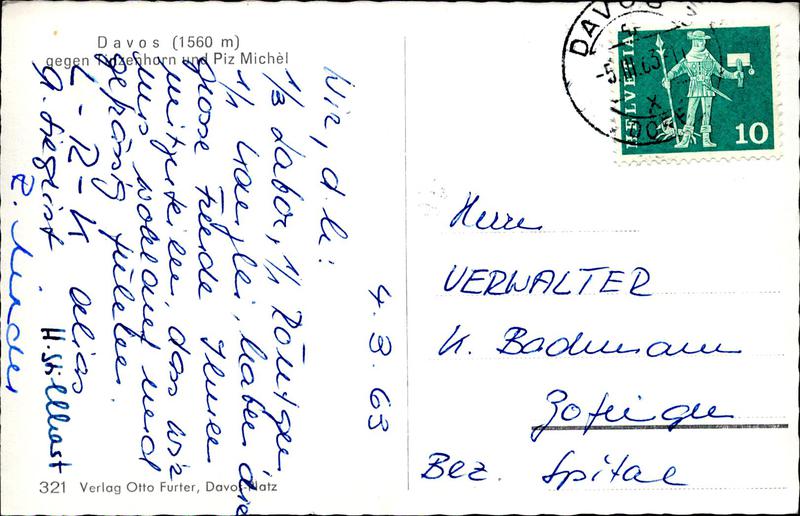 Davos (1560 m)
gegen Tinzenhorn und Piz Michèl
Wir, d.h:
1/3 Labor, 1/1 Röntgen
1/1 Kanzlei, haben die
grosse Freude Ihnen
mitzuteilen, dass wir
uns wohlauf und
gspässig fühlen.
L - R - K alias
A. Siegrist H. Stillhart
R.
4. 3. 63
321 Verlag Otto Furter, Davos-Platz
DAVOS
-5.III.63-11
X
DORF
HELVETIA
10
Herrn
VERWALTER
K. Bachmann
Zofingen
Bez. Spital